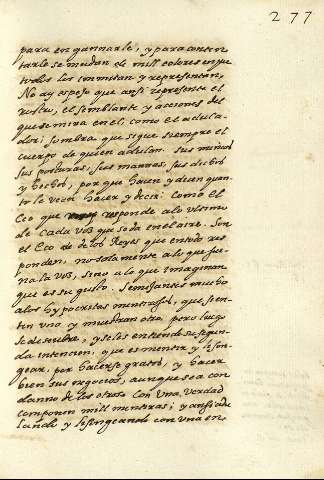 277
para engannarle, y para conten
tarle se mudan de mill colores en que
todos los immitan y representan,
No ay espejo que ansi represente el
rostro, el semblante y acciones del
que se mira en el, como el adula-
dor; sombra que sigue siempre el
cuerpo de quien adulan. sus
sus posturas, sus mannas, sus dichos
y hechos, por que hacen y dicen quan-
to le veen hacer y decir: como el
Eco que responde a lo ultimo
de cada voz que se da en el aire. Son
el Eco de de los Reyes que en todo res-
ponden, no solamente a lo que sue-
na la voz, sino a lo que imaginan
que es su gusto. Semejantes mucho
a los hypocritas mentirosos, que sien-
ten uno y muestran otro pero luego
se descubre, y se les entiende su segun-
da intencion, que es mentir y lison-
gear, por hacerse gratos, y hacer
bien sus negocios, aunque sea con
danno de los otros. Con una verdad
componen mill mentiras; y ansi adu
lando y lisongeando con una en-